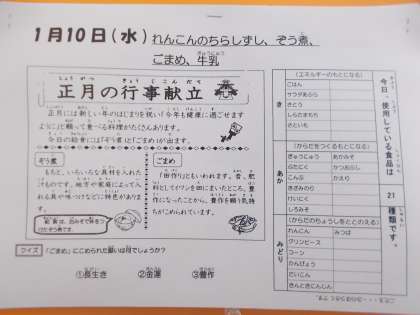 1月10日(水)れんこんのちらしずし、ぞう煮、
ごまめ、牛乳
正月の行事献立
正月には新しい年のはじまりを祝い「今年も健康に過ごせます
ように」と願って食べる料理がたくさんあります。
今日の給食には「ぞう煮」と「ごまめ」が出ます。
ぞう煮
もちと、いろいろな具材を入れた
汁ものです。地方や家庭によって入
れる具や味つけなどに特色がありま
す。
ごまめ
「田作り」ともいわれます。昔、肥
料としてイワシを田にまいたところ、豊
作になったことから、豊作を願う気持
ちがこめられています。
クイズ 「ごまめ」にこめられた願いは何でしょうか?
①長生き ②金運 ③豊作
今日、使用している食品は 21 種類です。
き
(エネルギーのもとになる)
ごはん
サラダあぶら
さとう
しらたまもち
さといも
あか
(からだをつくるもとになる)
ぎゅうにゅう あかみそ
ぶたにく かつおぶし
こんぶ かえり
きざみのり
けいにく
しろみそ
みどり
(からだのちょうしをととのえる)
れんこん みつば
グリンピース
コーン
かんぴょう
だいこん
きんときにんじん